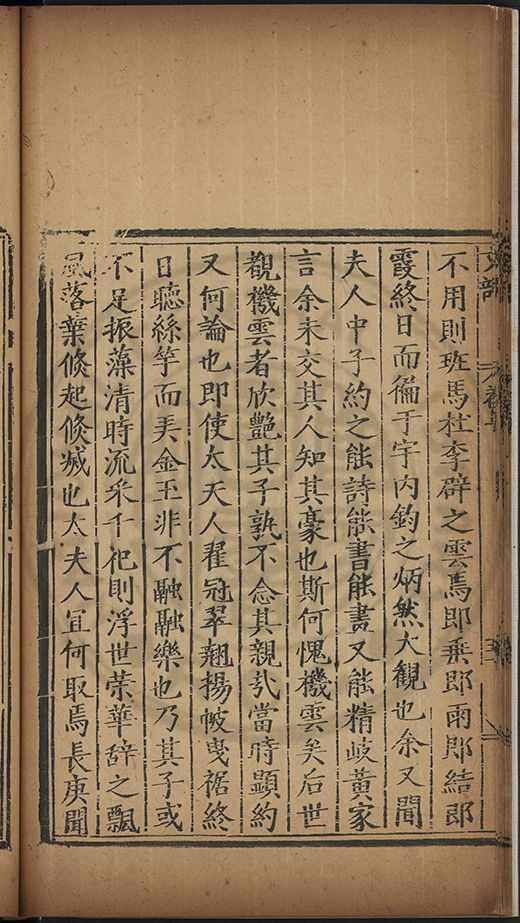 文部
不用則班馬杜李辟之雲焉即乗即雨即結即
霞終日而徧于宇内鈞之炳然大觀也余又聞
夫人中子約之能詩能書能畫又能精岐黃家
言余未交其人知其豪也斯何愧機雲矣后世
觀機雲者欣艷其子孰不念其親㢤當時顯約
又何論也即使太夫人翟冠翠翹揚帔曳裾終
日聽絲竽而美金玉非不融融樂也乃其子或
不足振藻清時流采千祀則浮世荣華辟之飄
風落葉倏起倏滅也太夫人宜何取焉長庚聞